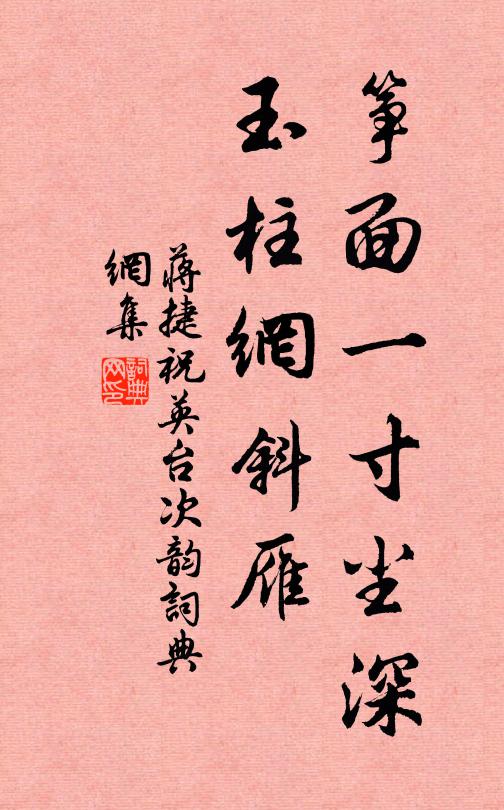 筝面一寸尘深
玉柱網斜雁
蒋捷祝英台次韵詞典
網集
詞典
网印